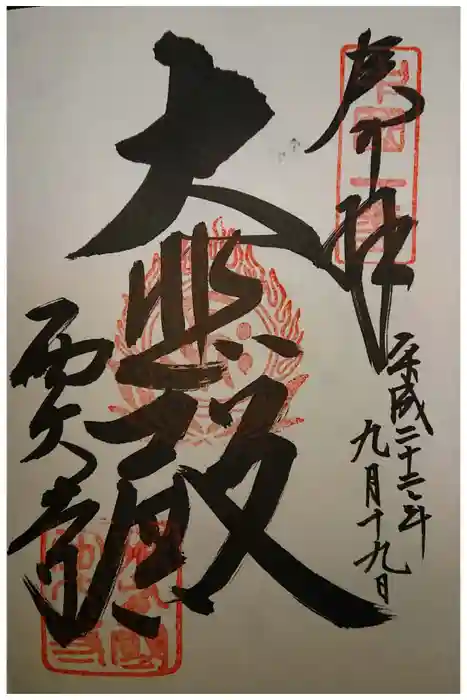 奉拝
平成二十二年
九月十九日
大悲殿
西大寺